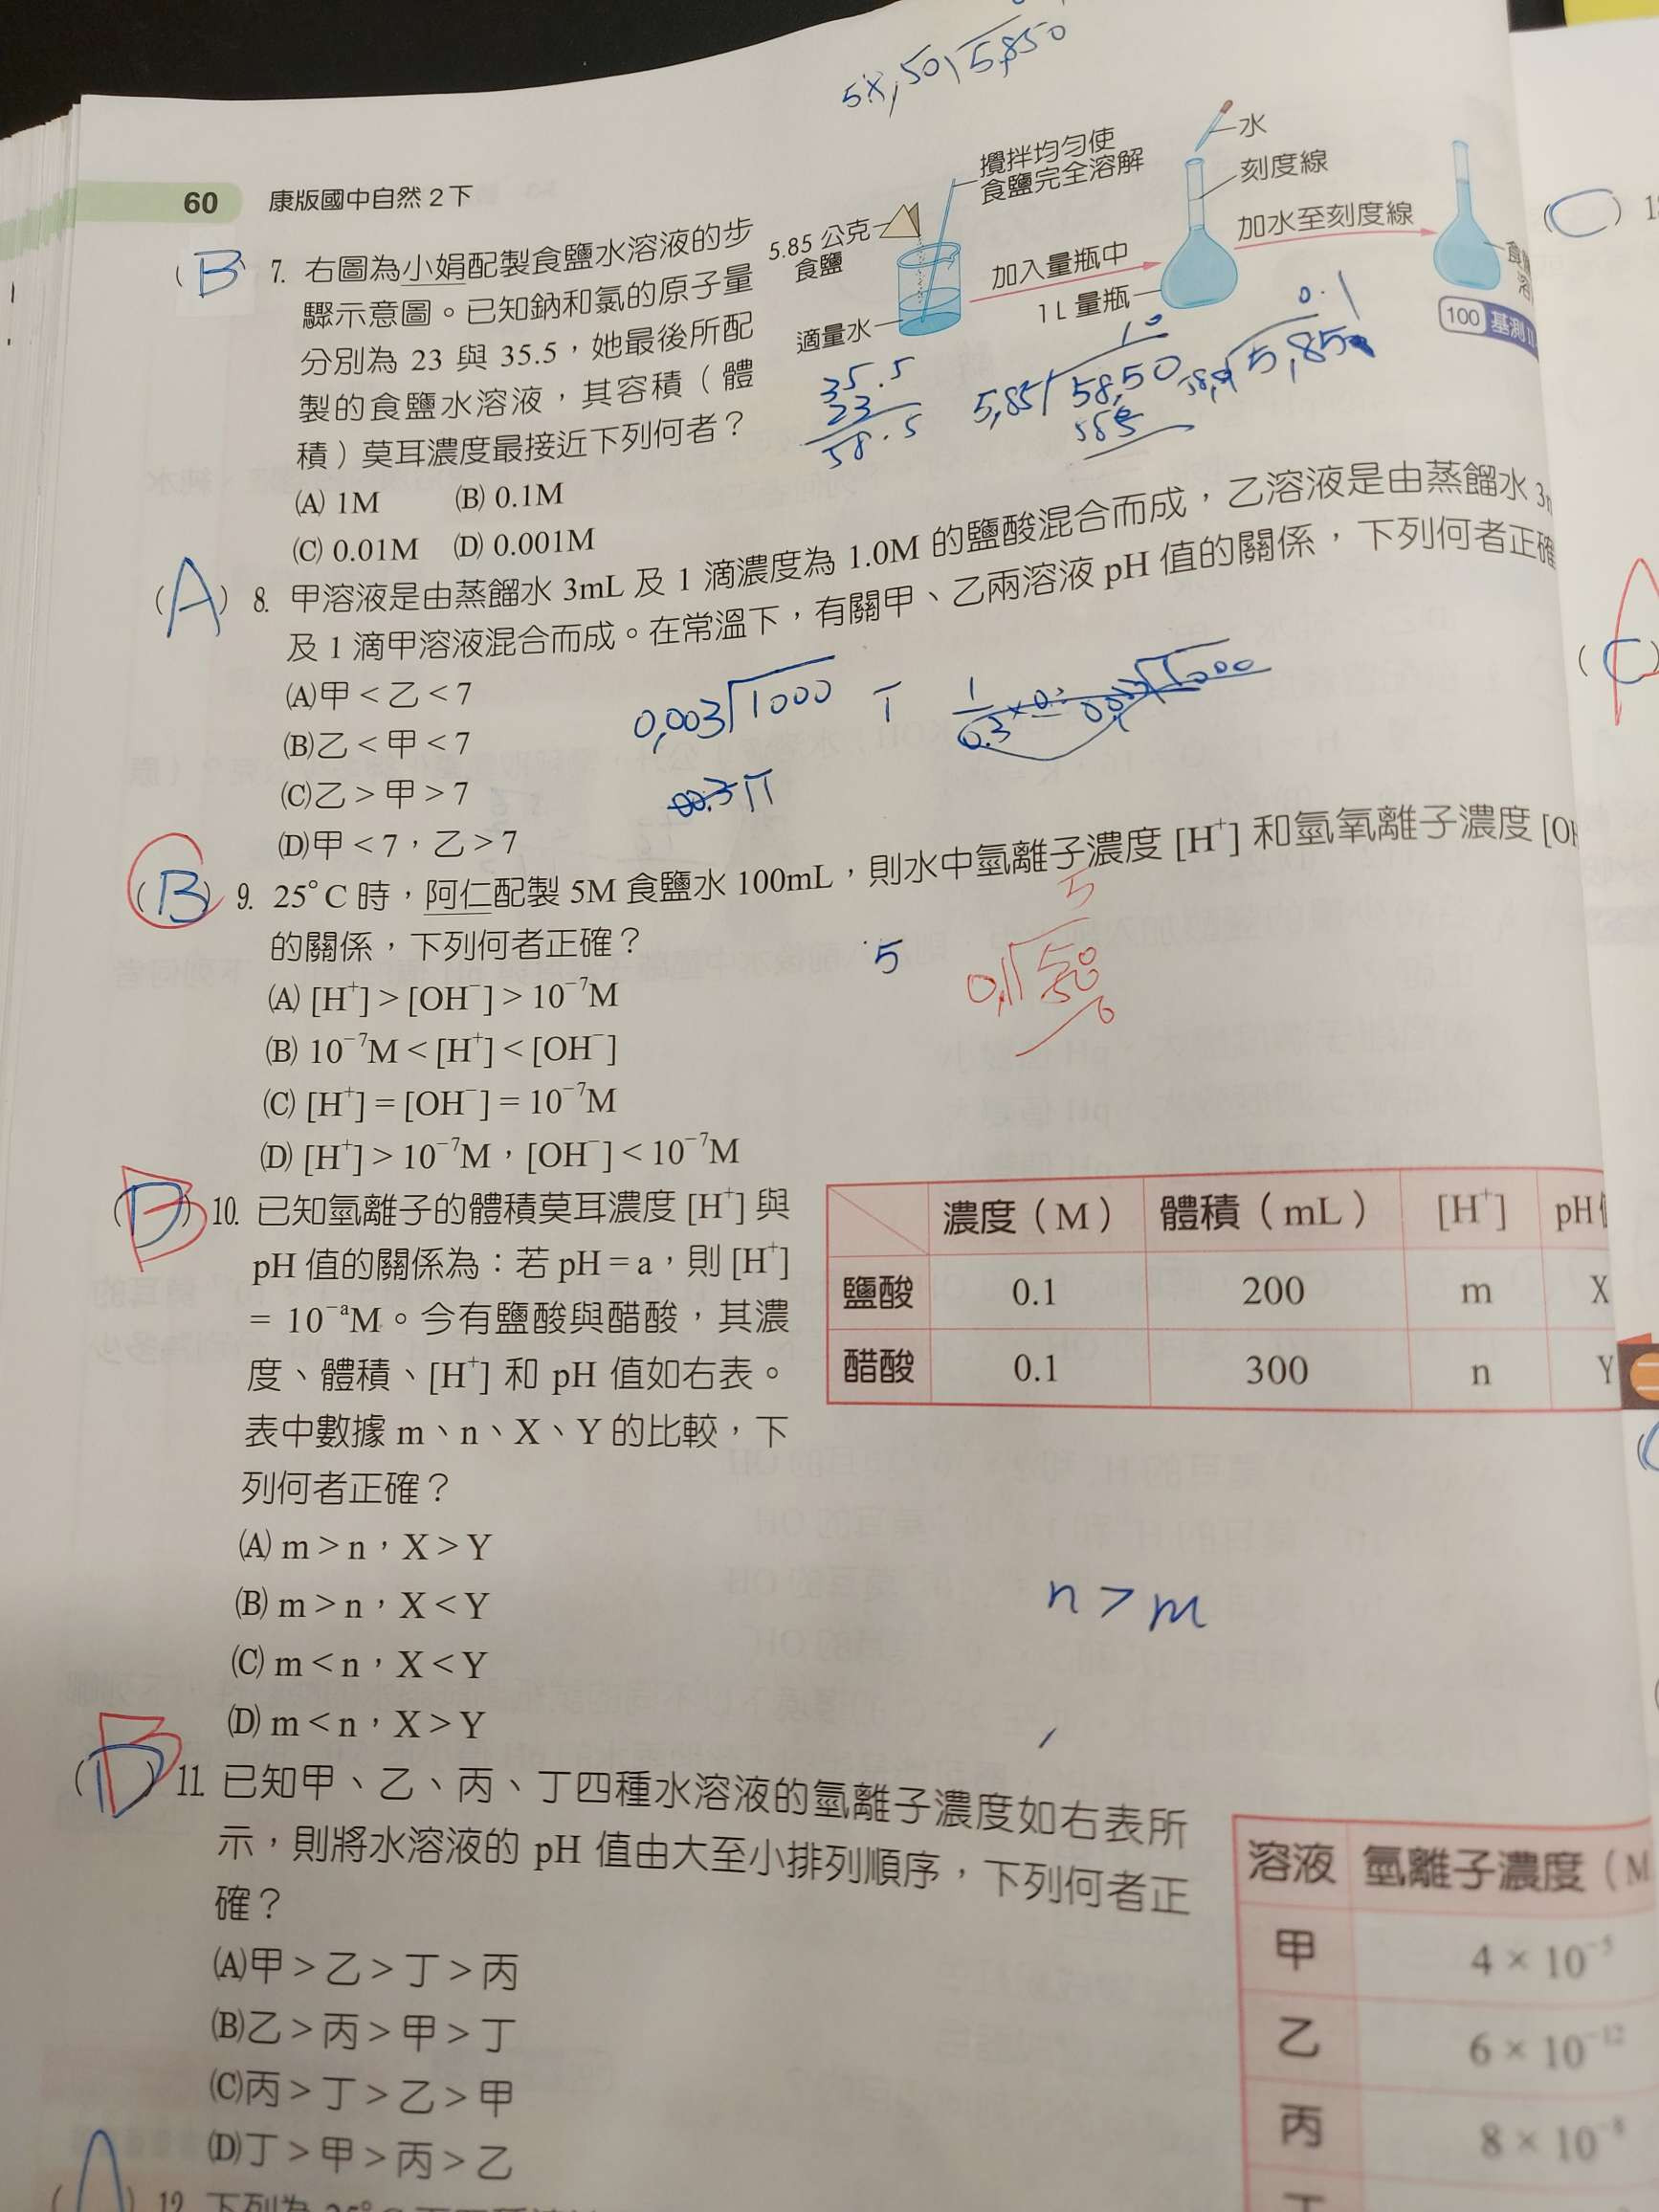 58.50 5.850
60 康版國中自然2下
(B) 7. 右圖為小娟配製食鹽水溶液的步
驟示意圖。已知鈉和氯的原子量
分別為 23 與 35.5,她最後所配
製的食鹽水溶液,其容積(體
積)莫耳濃度最接近下列何者?
(A) 1M (B) 0.1M
(C) 0.01M (D) 0.001M
5.85 公克
食鹽
適量水
攪拌均勻使
食鹽完全溶解
加入量瓶中
1L 量瓶
水
刻度線
加水至刻度線
100 基測
35.5
23
58.5
10
5.85 58.50
585
0.1
5.85
(A) 8. 甲溶液是由蒸餾水 3mL 及 1 滴濃度為 1.0M 的鹽酸混合而成,乙溶液是由蒸餾水
及 1 滴甲溶液混合而成。在常溫下,有關甲、乙兩溶液 pH 值的關係,下列何者正確
(A)甲<乙<7
(B)乙<甲<7
(C)乙>甲>7
(D)甲<7,乙>7
0.003 1000
(B) 9. 25°C 時,阿仁配製 5M 食鹽水 100mL,則水中氫離子濃度 [H⁺] 和氫氧離子濃度
的關係,下列何者正確?
(A) [H⁺] > [OH⁻] > 10⁻⁷M
(B) 10⁻⁷M < [H⁺] < [OH⁻]
(C) [H⁺] = [OH⁻] = 10⁻⁷M
(D) [H⁺] > 10⁻⁷M,[OH⁻] < 10⁻⁷M
5
5
0.1 50
50
0
10. 已知氫離子的體積莫耳濃度 [H⁺] 與
pH 值的關係為:若 pH = a,則 [H⁺]
= 10⁻ᵃM。今有鹽酸與醋酸,其濃
度、體積、[H⁺] 和 pH 值如右表。
表中數據 m、n、X、Y 的比較,下
列何者正確?
(A) m > n,X > Y
(B) m > n,X < Y
(C) m < n,X < Y
(D) m < n,X > Y
濃度(M) 體積(mL) [H⁺] pH
鹽酸 0.1 200 m X
醋酸 0.1 300 n Y
n > m
11. 已知甲、乙、丙、丁四種水溶液的氫離子濃度如右表所
示,則將水溶液的 pH 值由大至小排列順序,下列何者正
確?
(A)甲>乙>丁>丙
(B)乙>丙>甲>丁
(C)丙>丁>乙>甲
(D)丁>甲>丙>乙
溶液 氫離子濃度(M
甲 4 × 10⁻⁵
乙 6 × 10⁻¹²
丙 8 × 10⁻⁸
(A) 12.
(C)
(C)